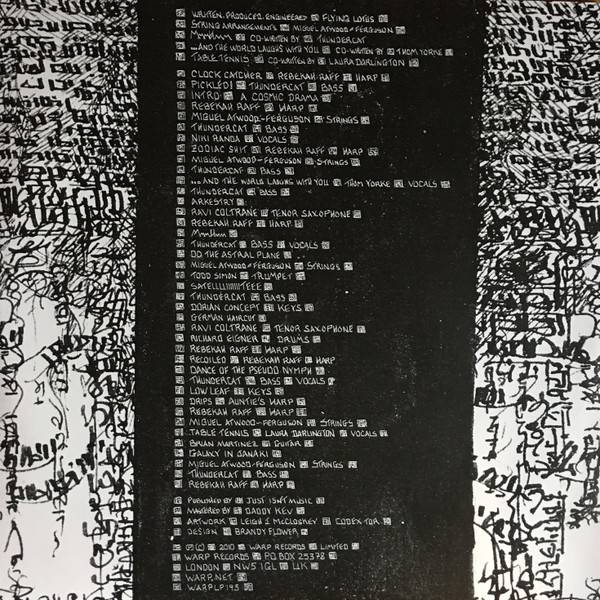 WRITTEN, PRODUCED, ENGINEERED FLYING LOTUS
STRING ARRANGEMENTS MIGUEL ATWOOD-FERGUSON
MmmHmm CO-WRITTEN BY THUNDERCAT
...AND THE WORLD LAUGHS WITH YOU CO-WRITTEN BY THOM YORKE
TABLE TENNIS CO-WRITTEN BY LAURA DARLINGTON
CLOCK CATCHER REBEKAH RAFF HARP
PICKLED! THUNDERCAT BASS
INTRO A COSMIC DRAMA
REBEKAH RAFF HARP
MIGUEL ATWOOD-FERGUSON STRINGS
THUNDERCAT BASS
NIKI RANDA VOCALS
ZODIAC SHIT REBEKAH RAFF HARP
MIGUEL ATWOOD-FERGUSON STRINGS
THUNDERCAT BASS
...AND THE WORLD LAUGHS WITH YOU THOM YORKE VOCALS
THUNDERCAT BASS
ARKESTRY
RAVI COLTRANE TENOR SAXOPHONE
REBEKAH RAFF HARP
MmmHmm
THUNDERCAT BASS VOCALS
DO THE ASTRAL PLANE
MIGUEL ATWOOD-FERGUSON STRINGS
TODD SIMON TRUMPET
SATELLLLIIIIIIITEEE
THUNDERCAT BASS
DORIAN CONCEPT KEYS
GERMAN HAIRCUT
RAVI COLTRANE TENOR SAXOPHONE
RICHARD EIGNER DRUMS
REBEKAH RAFF HARP
RECOILED REBEKAH RAFF HARP
DANCE OF THE PSEUDO NYMPH
THUNDERCAT BASS VOCALS
LOW LEAF KEYS
DRIPS AUNTIE'S HARP
REBEKAH RAFF HARP
MIGUEL ATWOOD-FERGUSON STRINGS
TABLE TENNIS LAURA DARLINGTON VOCALS
BRIAN MARTINEZ GUITAR
GALAXY IN JANAKI
MIGUEL ATWOOD-FERGUSON STRINGS
THUNDERCAT BASS
REBEKAH RAFF HARP
PUBLISHED BY JUST ISN'T MUSIC
MASTERED BY DADDY KEV
ARTWORK LEIGH J MCCLOSKEY CODEX TOR
DESIGN BRANDY FLOWER
(P)(C) 2010 WARP RECORDS LIMITED
WARP RECORDS PO BOX 25378
LONDON NW5 1GL UK
WARP.NET
WARPLP195